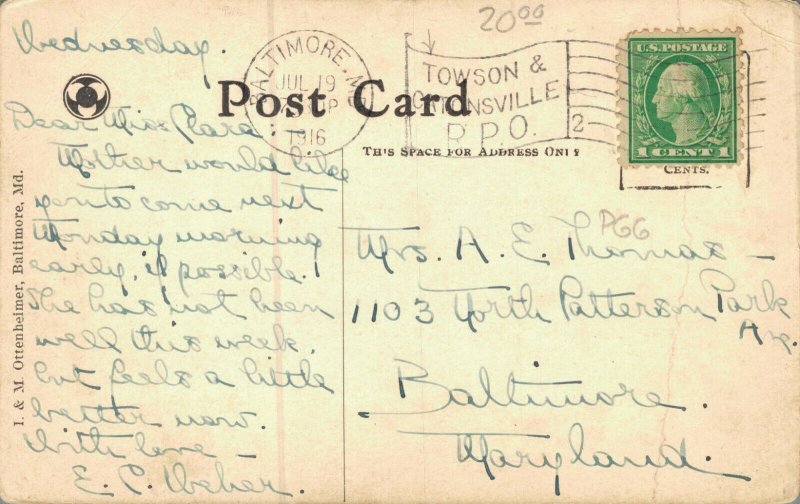 Wednesday.
Dear Miss Clara:
Mother would like
you to come next
Monday morning
early, if possible.
She has not been
well this week,
but feels a little
better now.
With love —
E. C. Weber.
I. & M. Ottenheimer, Baltimore, Md.
Post Card
THIS SPACE FOR ADDRESS ONLY
BALTIMORE, MD.
JUL 19
P
1916
TOWSON &
CATONSVILLE
R.P.O.
2
20.00
U.S. POSTAGE
1 CENT 1
CENTS.
PGG
Mrs. A. E. Thomas —
1103 North Patterson Park
Av.
Baltimore.
Maryland.